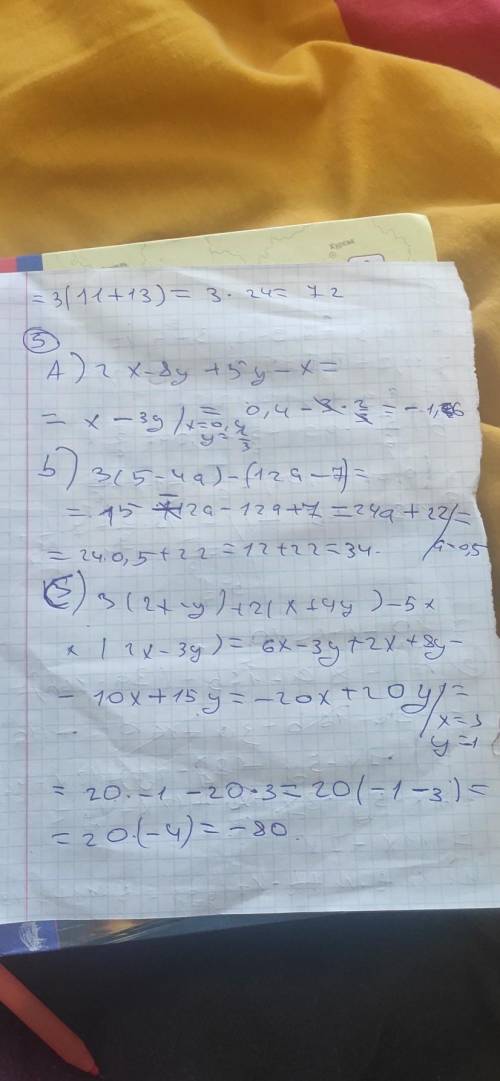 Курган
= 3(11+13) = 3 · 24 = 72
5
A) 2x-8y+5y-x=
= x-3y/x=0,4 y=2/3 = 0,4-3·2/3 = -1,6
b) 3(5-4a)-(12a-7)=
= 15-12a-12a+7=24a+22/a=0,5 =
= 24.0,5+22=12+22=34.
3(2x-y)+2(x+4y)-5x
x(2x-3y)= 6x-3y+2x+8y-
- 10x+15y=-20x+20y/x=3 y=-1 =
= 20·-1-20·3=20(-1-3)=
= 20·(-4)=-80.